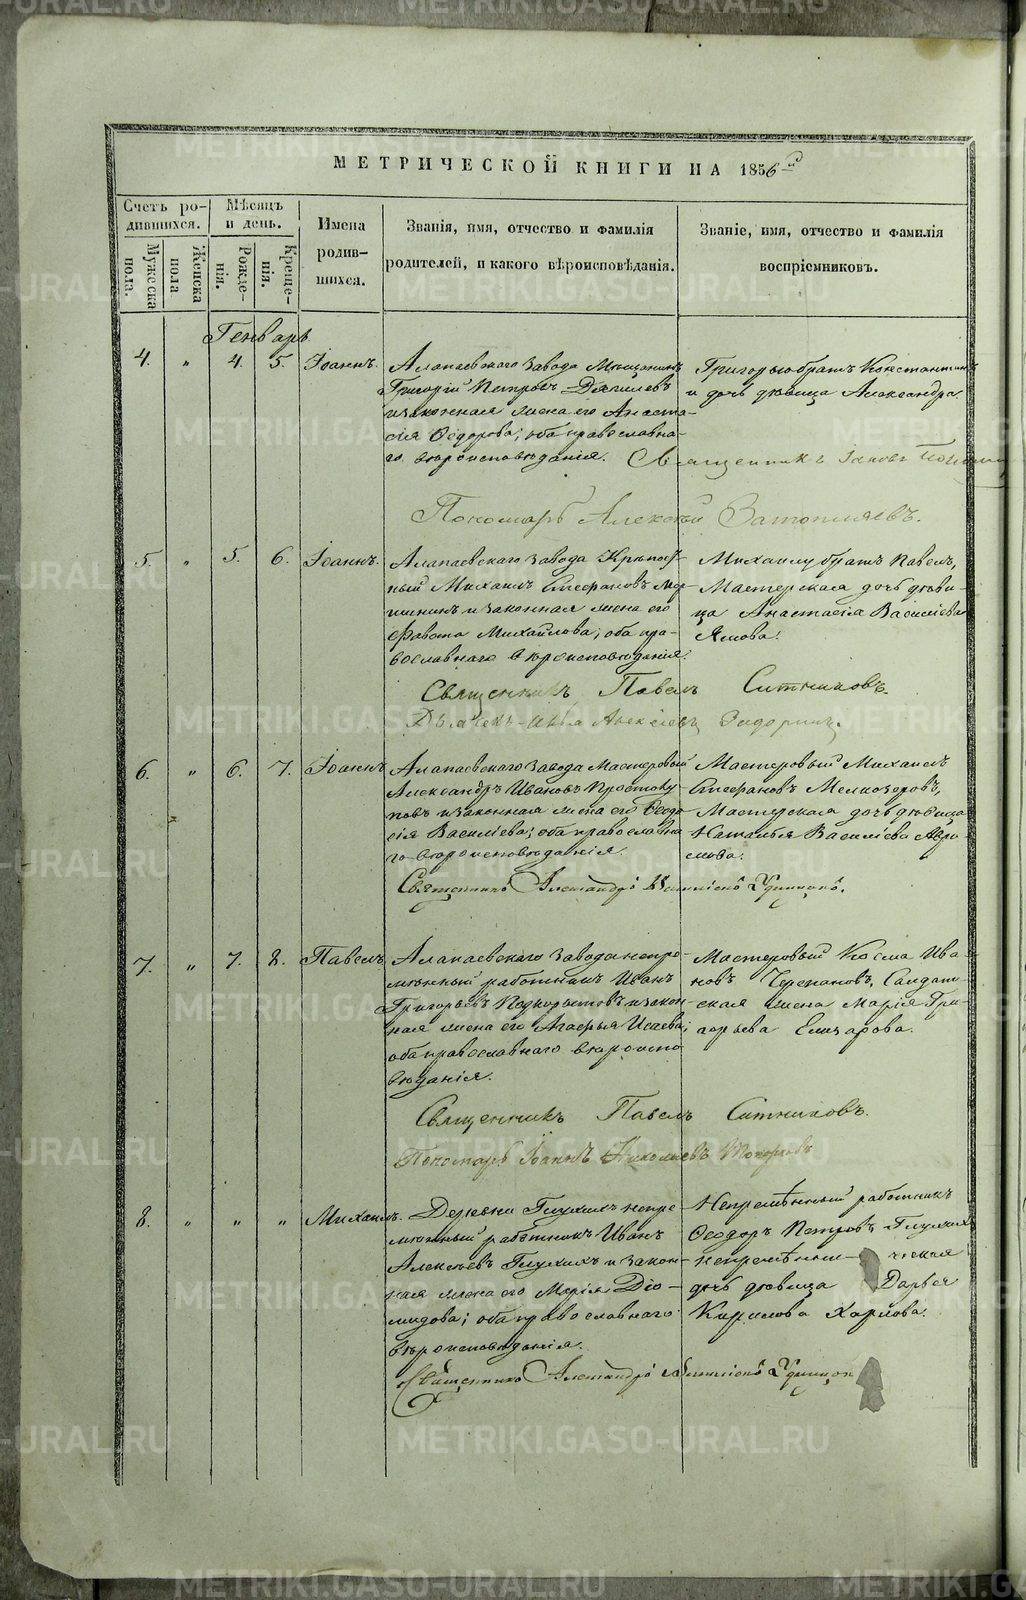 METRIKI.GASO-URAL.RU
МЕТРИЧЕСКОЙ КНИГИ НА 1856й
Счетъ родившихся.
Мужеска пола.
Женска пола
Мѣсяцъ и день.
Рожденія.
Крещенія.
Имена родившихся.
Званія, имя, отчество и фамилія родителей, и какого вѣроисповѣданія.
Званіе, имя, отчество и фамилія воспріемниковъ.
Генварь
4. " 4. 5. Іоаннъ.
Алапаевскаго завода
Григорій Петровъ Дягилевъ
и законная жена его Анаста-
сія Ѳедорова; оба православна-
го вѣроисповѣданія.
Григорью братъ Константинъ
и дочь дѣвица Александра.
Священникъ Іаковъ
Пономарь Алексѣй
5. " 5. 6. Іоаннъ.
Алапаевскаго завода Крѣпост-
ный Михаилъ Стефановъ
и законная жена его
Михайлова; оба пра-
вославнаго вѣроисповѣданія.
Михаилу братъ Павелъ,
Мастерская дочь дѣви-
ца Анастасія Василіева
Священникъ Павелъ Ситниковъ.
6. " 6. 7. Іоаннъ.
Алапаевскаго завода Мастеровый
Александръ Ивановъ Простолу-
повъ и законная жена его Ѳеодо-
сія Василіева; оба православна-
го вѣроисповѣданія.
Мастеровый Михаилъ
Стефановъ Мелкозеровъ,
Мастерская дочь дѣвица
Наталья Василіева Абра-
мова.
Священникъ Александръ Удинцовъ.
7. " 7. 8. Павелъ
Алапаевскаго завода непре-
мѣнный работникъ Иванъ
Григорьевъ Подкорытовъ и закон-
ная жена его Агафья Исаева;
оба православнаго вѣроиспо-
вѣданія.
Мастеровый Косма Ива-
новъ Черепановъ, Салдат-
ская жена Марія Гри-
горьева Елизарова.
Священникъ Павелъ Ситниковъ.
Пономарь Іоаннъ Николаевъ Топорковъ
8. " " " Михаилъ.
Деревни Глухихъ непре-
мѣнный работникъ Иванъ
Алексѣевъ Глухихъ и закон-
ная жена его Марія Діо-
мидова; оба православнаго
вѣроисповѣданія.
Непремѣнный работникъ
Ѳеодоръ Петровъ Глухихъ
дочь дѣвица Дарья
Кирилова Харлова.
Священникъ Александръ